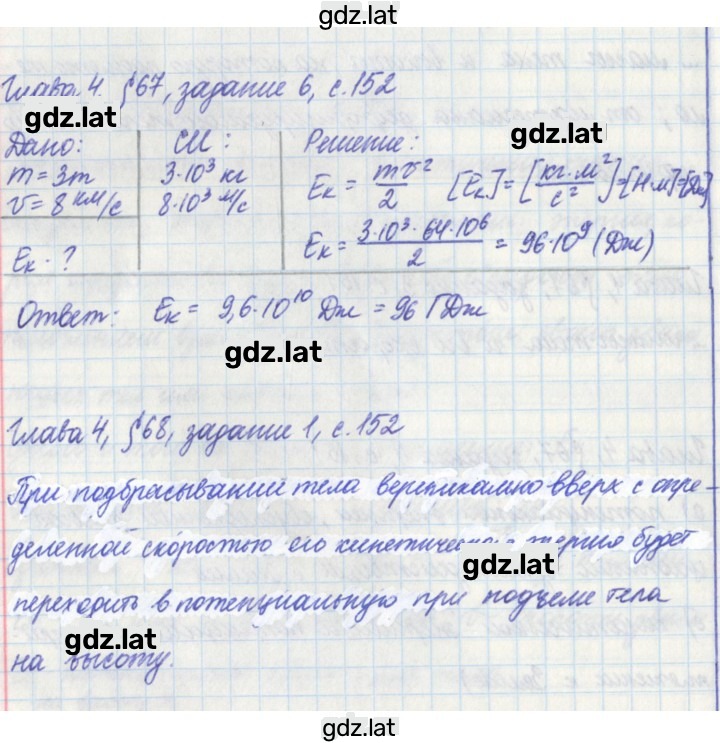 gdz.lat
Глава 4 §67, задание 6, с.152
gdz.lat
gdz.lat
Дано: СИ: Решение:
m = 3т 3·10³ кг Eк = mv²/2 [Eк] = [кг·м²/с²] = [Н·м] = [Дж]
v = 8 км/с 8·10³ м/с
Eк - ? Eк = 3·10³·64·10⁶/2 = 96·10⁹ (Дж)
Ответ: Eк = 9,6·10¹⁰ Дж = 96 ГДж
gdz.lat
Глава 4, §68, задание 1, с.152
При подбрасывании тела вертикально вверх с опре-
деленной скоростью его кинетическая энергия будет
gdz.lat
переходить в потенциальную при подъеме тела
gdz.lat
на высоту.
gdz.lat